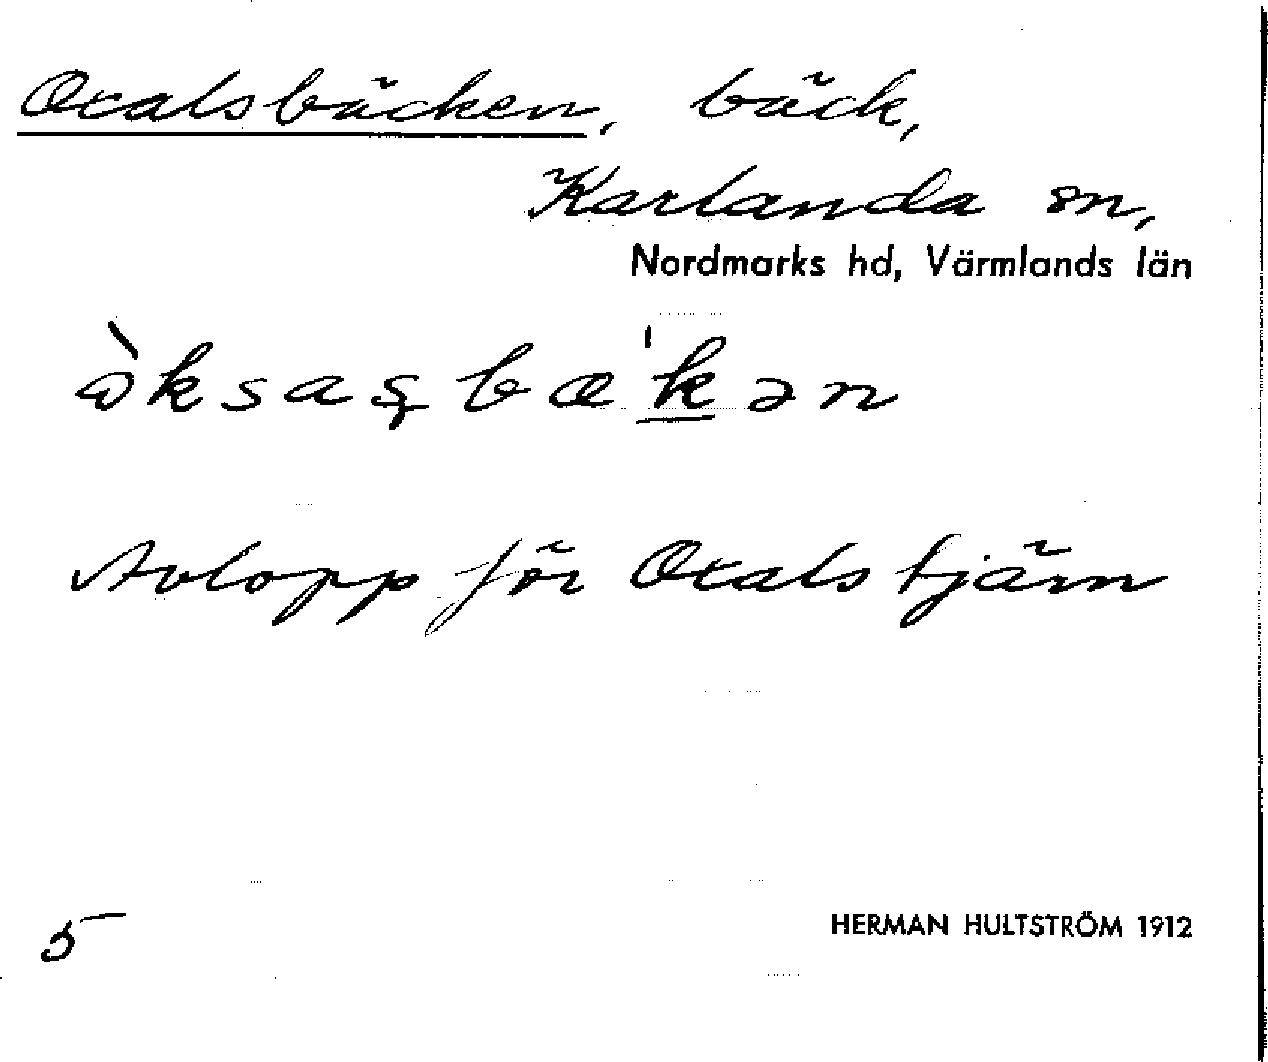 Oxalsbäcken, bäck,
Karlanda sn,
Nordmarks hd, Värmlands län
òksaʂbæ'kən
Avlopp för Oxalstjärn
5
HERMAN HULTSTRÖM 1912